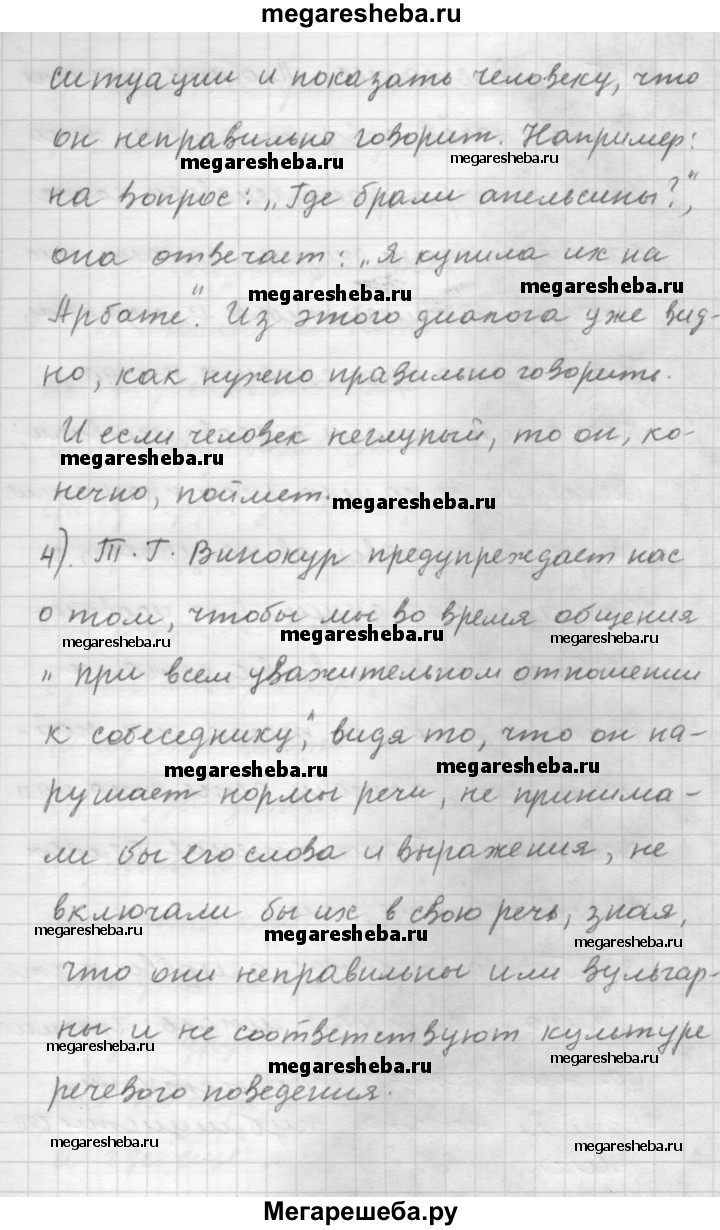 megaresheba.ru
ситуации и показать человеку, что
он неправильно говорит. Например:
megaresheba.ru megaresheba.ru
на вопрос: „Где брали апельсины?",
она отвечает: „Я купила их на
megaresheba.ru
Арбате". Из этого диалога уже вид-
но, как нужно правильно говорить.
И если человек неглупый, то он, ко-
megaresheba.ru
нечно, поймет.
megaresheba.ru
4). Т. Г. Винокур предупреждает нас
о том, чтобы мы во время общения
megaresheba.ru megaresheba.ru megaresheba.ru
„при всем уважительном отношении
к собеседнику", видя то, что он на-
megaresheba.ru megaresheba.ru
рушает нормы речи, не принима-
ли бы его слова и выражения, не
включали бы их в свою речь, зная,
megaresheba.ru megaresheba.ru megaresheba.ru
что они неправильны или вульгар-
ны и не соответствуют культуре
megaresheba.ru megaresheba.ru megaresheba.ru
речевого поведения.
megaresheba.ru megaresheba.ru
Мегарешеба.ру